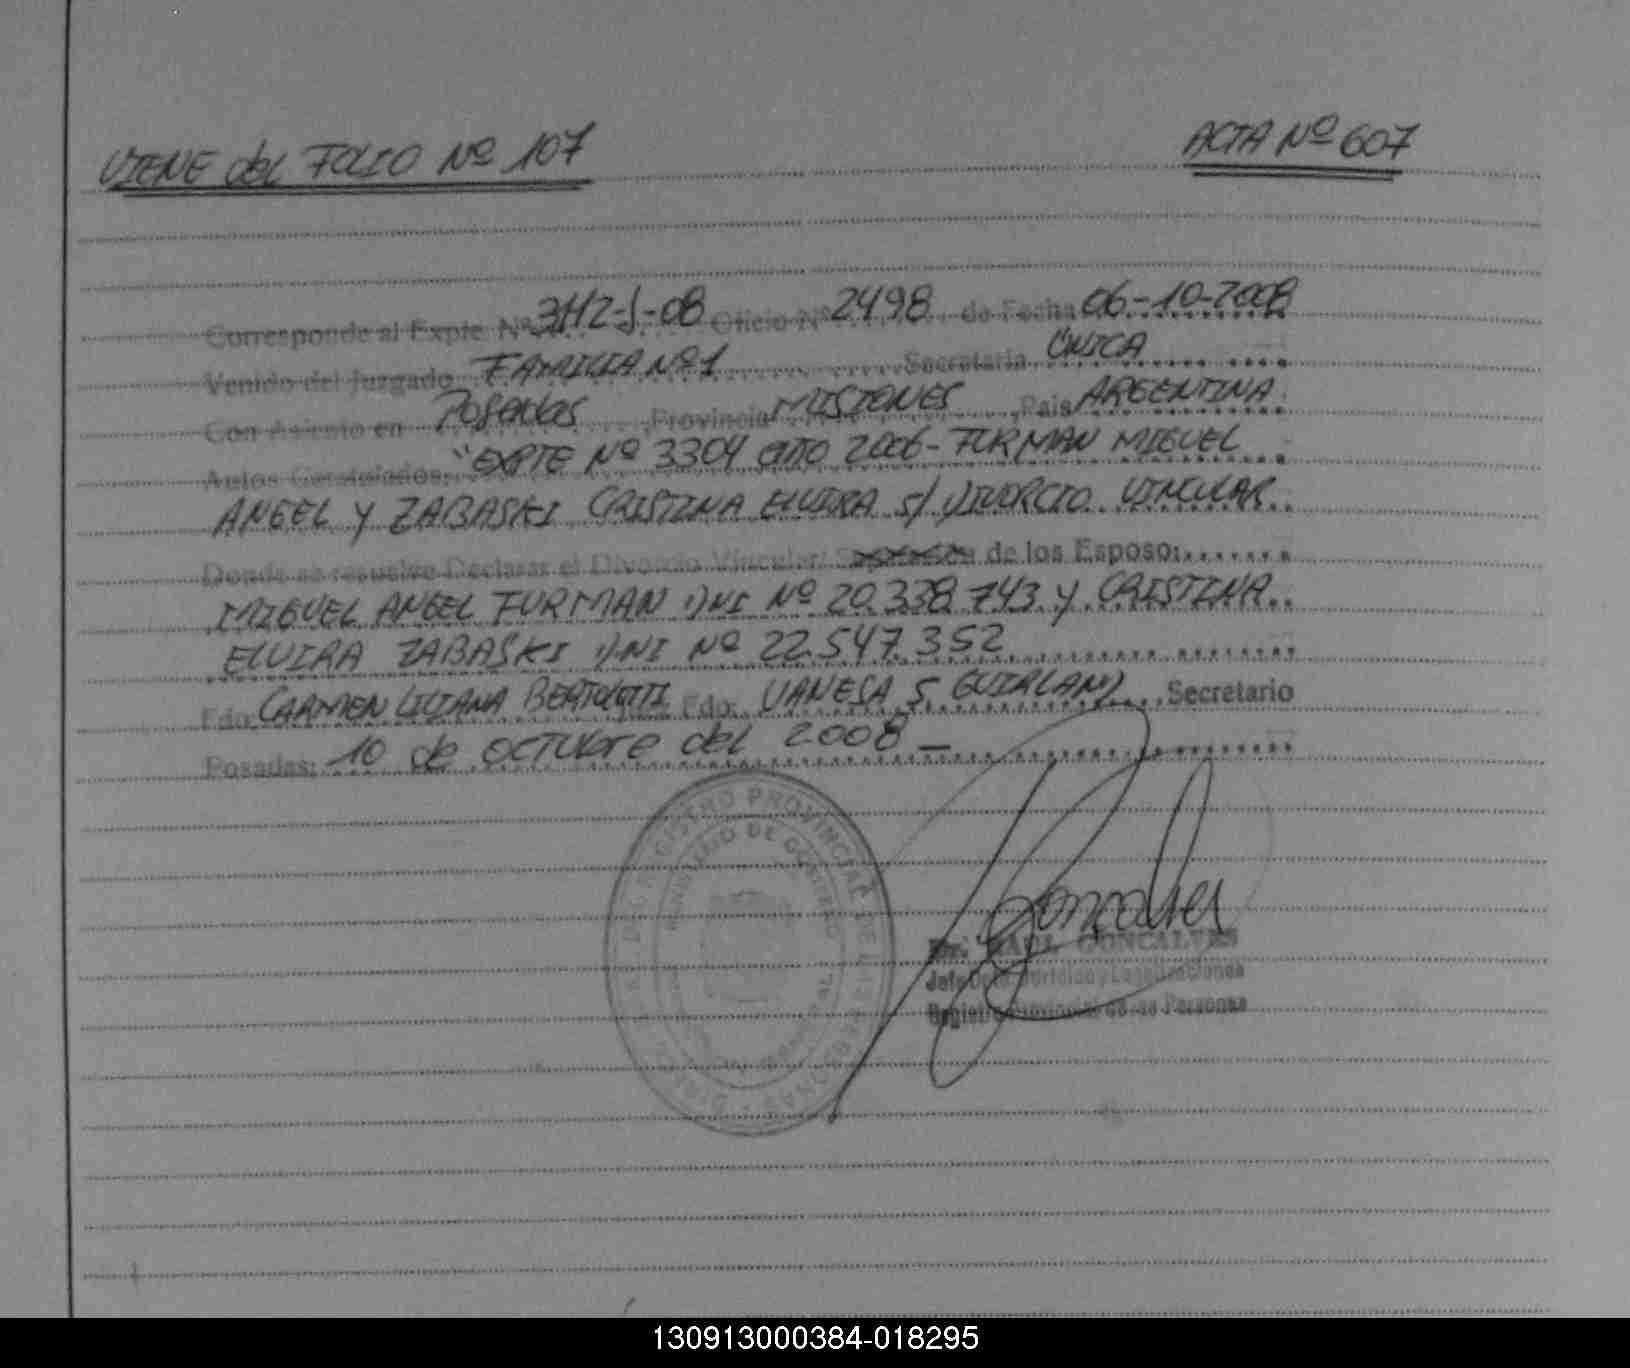 VIENE del FOLIO Nº 107
ACTA Nº 607
Corresponde al Expte Nº 3112-J-08 Oficio Nº 2498 de Fecha 06-10-2008
Venido del Juzgado FAMILIA Nº 1 Secretaria ÚNICA
Con Asiento en Posadas, Provincia MISIONES, Pais ARGENTINA
Autos Caratulados: "EXPTE Nº 3304 año 2006 - FURMAN MIGUEL
ANGEL y ZABASKI CRISTINA ELVIRA s/ DIVORCIO VINCULAR
Donde se resuelve Declarar el Divorcio Vincular/ de los Esposo:
MIGUEL ANGEL FURMAN DNI Nº 20.338.743 y CRISTINA
ELVIRA ZABASKI DNI Nº 22.547.352
Fdo: CARMEN LILIANA BERTOLOTTI Fdo: VANESA S. Secretario
Posadas: 10 de OCTUBRE del 2008 —
REGISTRO PROVINCIAL DE
MINISTERIO DE GOBIERNO
Goncalves
Dr. RAUL GONCALVES
Jefe Dpto. Jurídico y Legalizaciones
Registro Provincial de las Personas
130913000384-018295